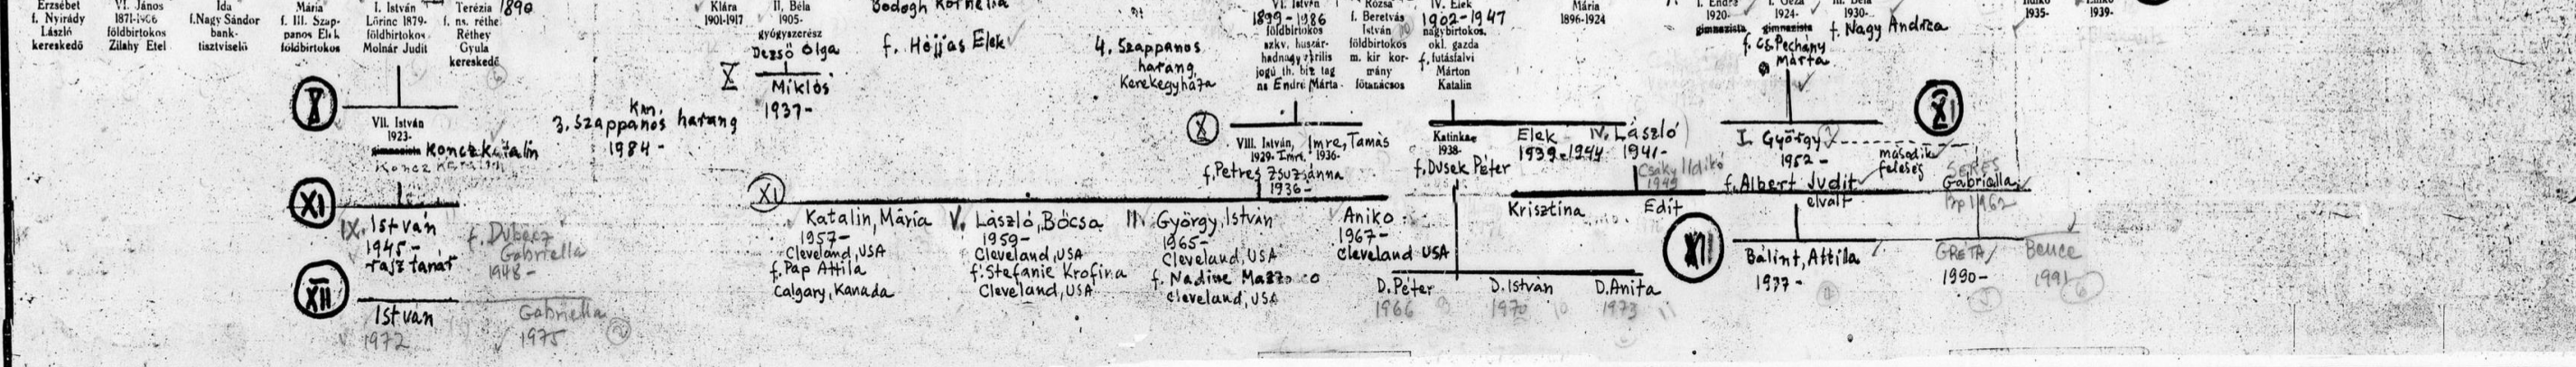 Erzsébet
f. Nyirády
László
kereskedő
VI. János
1871-1906
földbirtokos
Zilahy Etel
Ida
f. Nagy Sándor
bank-
tisztviselő
Mária
f. III. Szap-
panos Elek
földbirtokos
I. István
Lőrinc 1879-
földbirtokos
Molnár Judit
Terézia 1890
f. ns. réthei
Réthey
Gyula
kereskedő
Klára
1901-1917
II. Béla
1905-
gyógyszerész
Dezső Olga
Bodogh Kornélia
f. Hojjas Elek
4. Szappanos
harang
Kerekegyháza
VI. István
1899-1986
földbirtokos
szkv. huszár-
hadnagy virilis
jogú th. biz. tag
ns Endre Márta
Rózsa
f. Beretvás
István
földbirtokos
m. kir kor-
mány
főtanácsos
IV. Elek
1902-1947
nagybirtokos.
okl. gazda
f. futásfalvi
Márton
Katalin
Mária
1896-1924
I. Endre
1920-
gimnazista
I. Géza
1924-
gimnazista
f. Cs. Pechány
Márta
III. Béla
1930-
f. Nagy Andrea
Ildikó
1935-
1939-
X
VII. István
1923-
gimnazista Koncz Katalin
Koncz Katalin
Km.
3. Szappanos harang
1984-
X
Miklós
1937-
X
VIII. István, Imre, Tamás
1929- Imre, 1936-
f. Petres Zsuzsánna
1936-
Katinka
1938-
f. Dusek Péter
Elek
1939-1944
IV. László
1941-
Csáky Ildikó
1949
I. György
1952-
f. Albert Judit
elvált
második
feleség
Gabriella
1962
XI
XI
IX. István
1945-
rajztanár
f. Dubecz
Gabriella
1948-
XI
Katalin, Mária
1957-
Cleveland, USA
f. Pap Attila
Calgary, Kanada
V. László, Bócsa
1959-
Cleveland, USA
f. Stefanie Krofina
Cleveland, USA
II. György, István
1965-
Cleveland, USA
f. Nadine
Cleveland, USA
Aniko
1967-
Cleveland USA
Krisztina
Edit
XII
Bálint, Attila
1977-
GRÉTA
1990-
Bence
1991
XII
István
1972
Gabriella
1975
D. Péter
1966
D. István
1970
D. Anita
1973